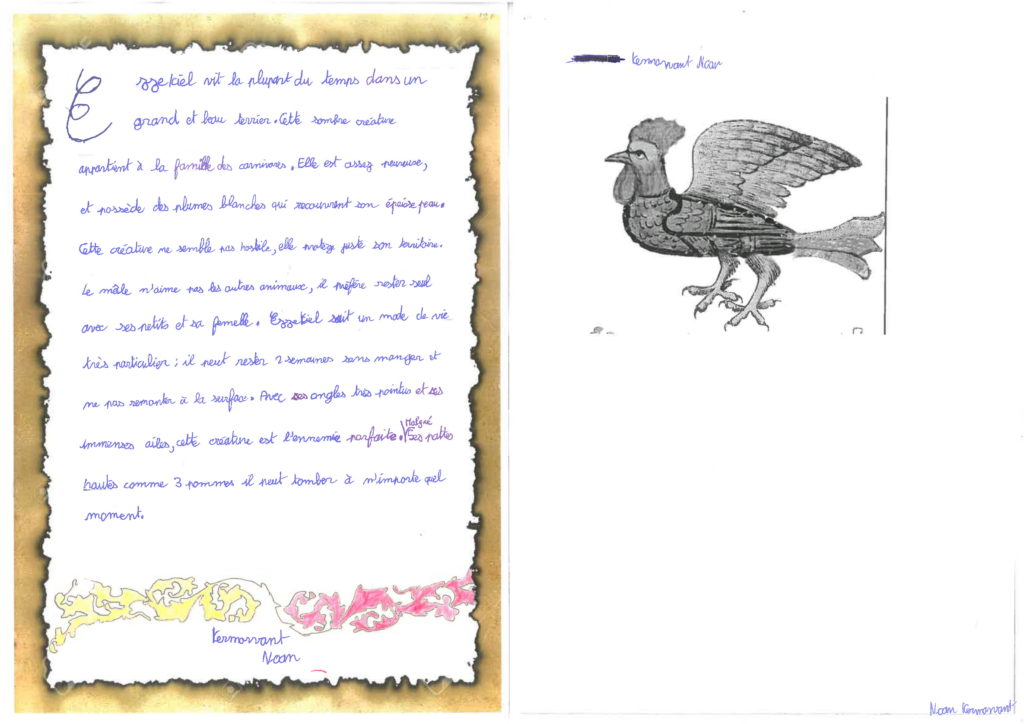 Ezzekiel vit la plupart du temps dans un
grand et beau terrier. Cette sombre créature
appartient à la famille des carnivores. Elle est assez peureuse,
et possède des plumes blanches qui recouvrent son épaise peau.
Cette créature ne semble pas hostile, elle protège juste son territoire.
Le mâle n'aime pas les autres animaux, il préfère rester seul
avec ses petits et sa femelle. Ezzekiel suit un mode de vie
très particulier ; il peut rester 2 semaines sans manger et
ne pas remonter à la surface. Avec ses ongles très pointus et ses
immenses ailes, cette créature est l'ennemie parfaite. Malgré Ses pattes
hautes comme 3 pommes il peut tomber à n'importe quel
moment.
Kermorvant
Noan
Kermorvant Noan
Noan Kermorvant